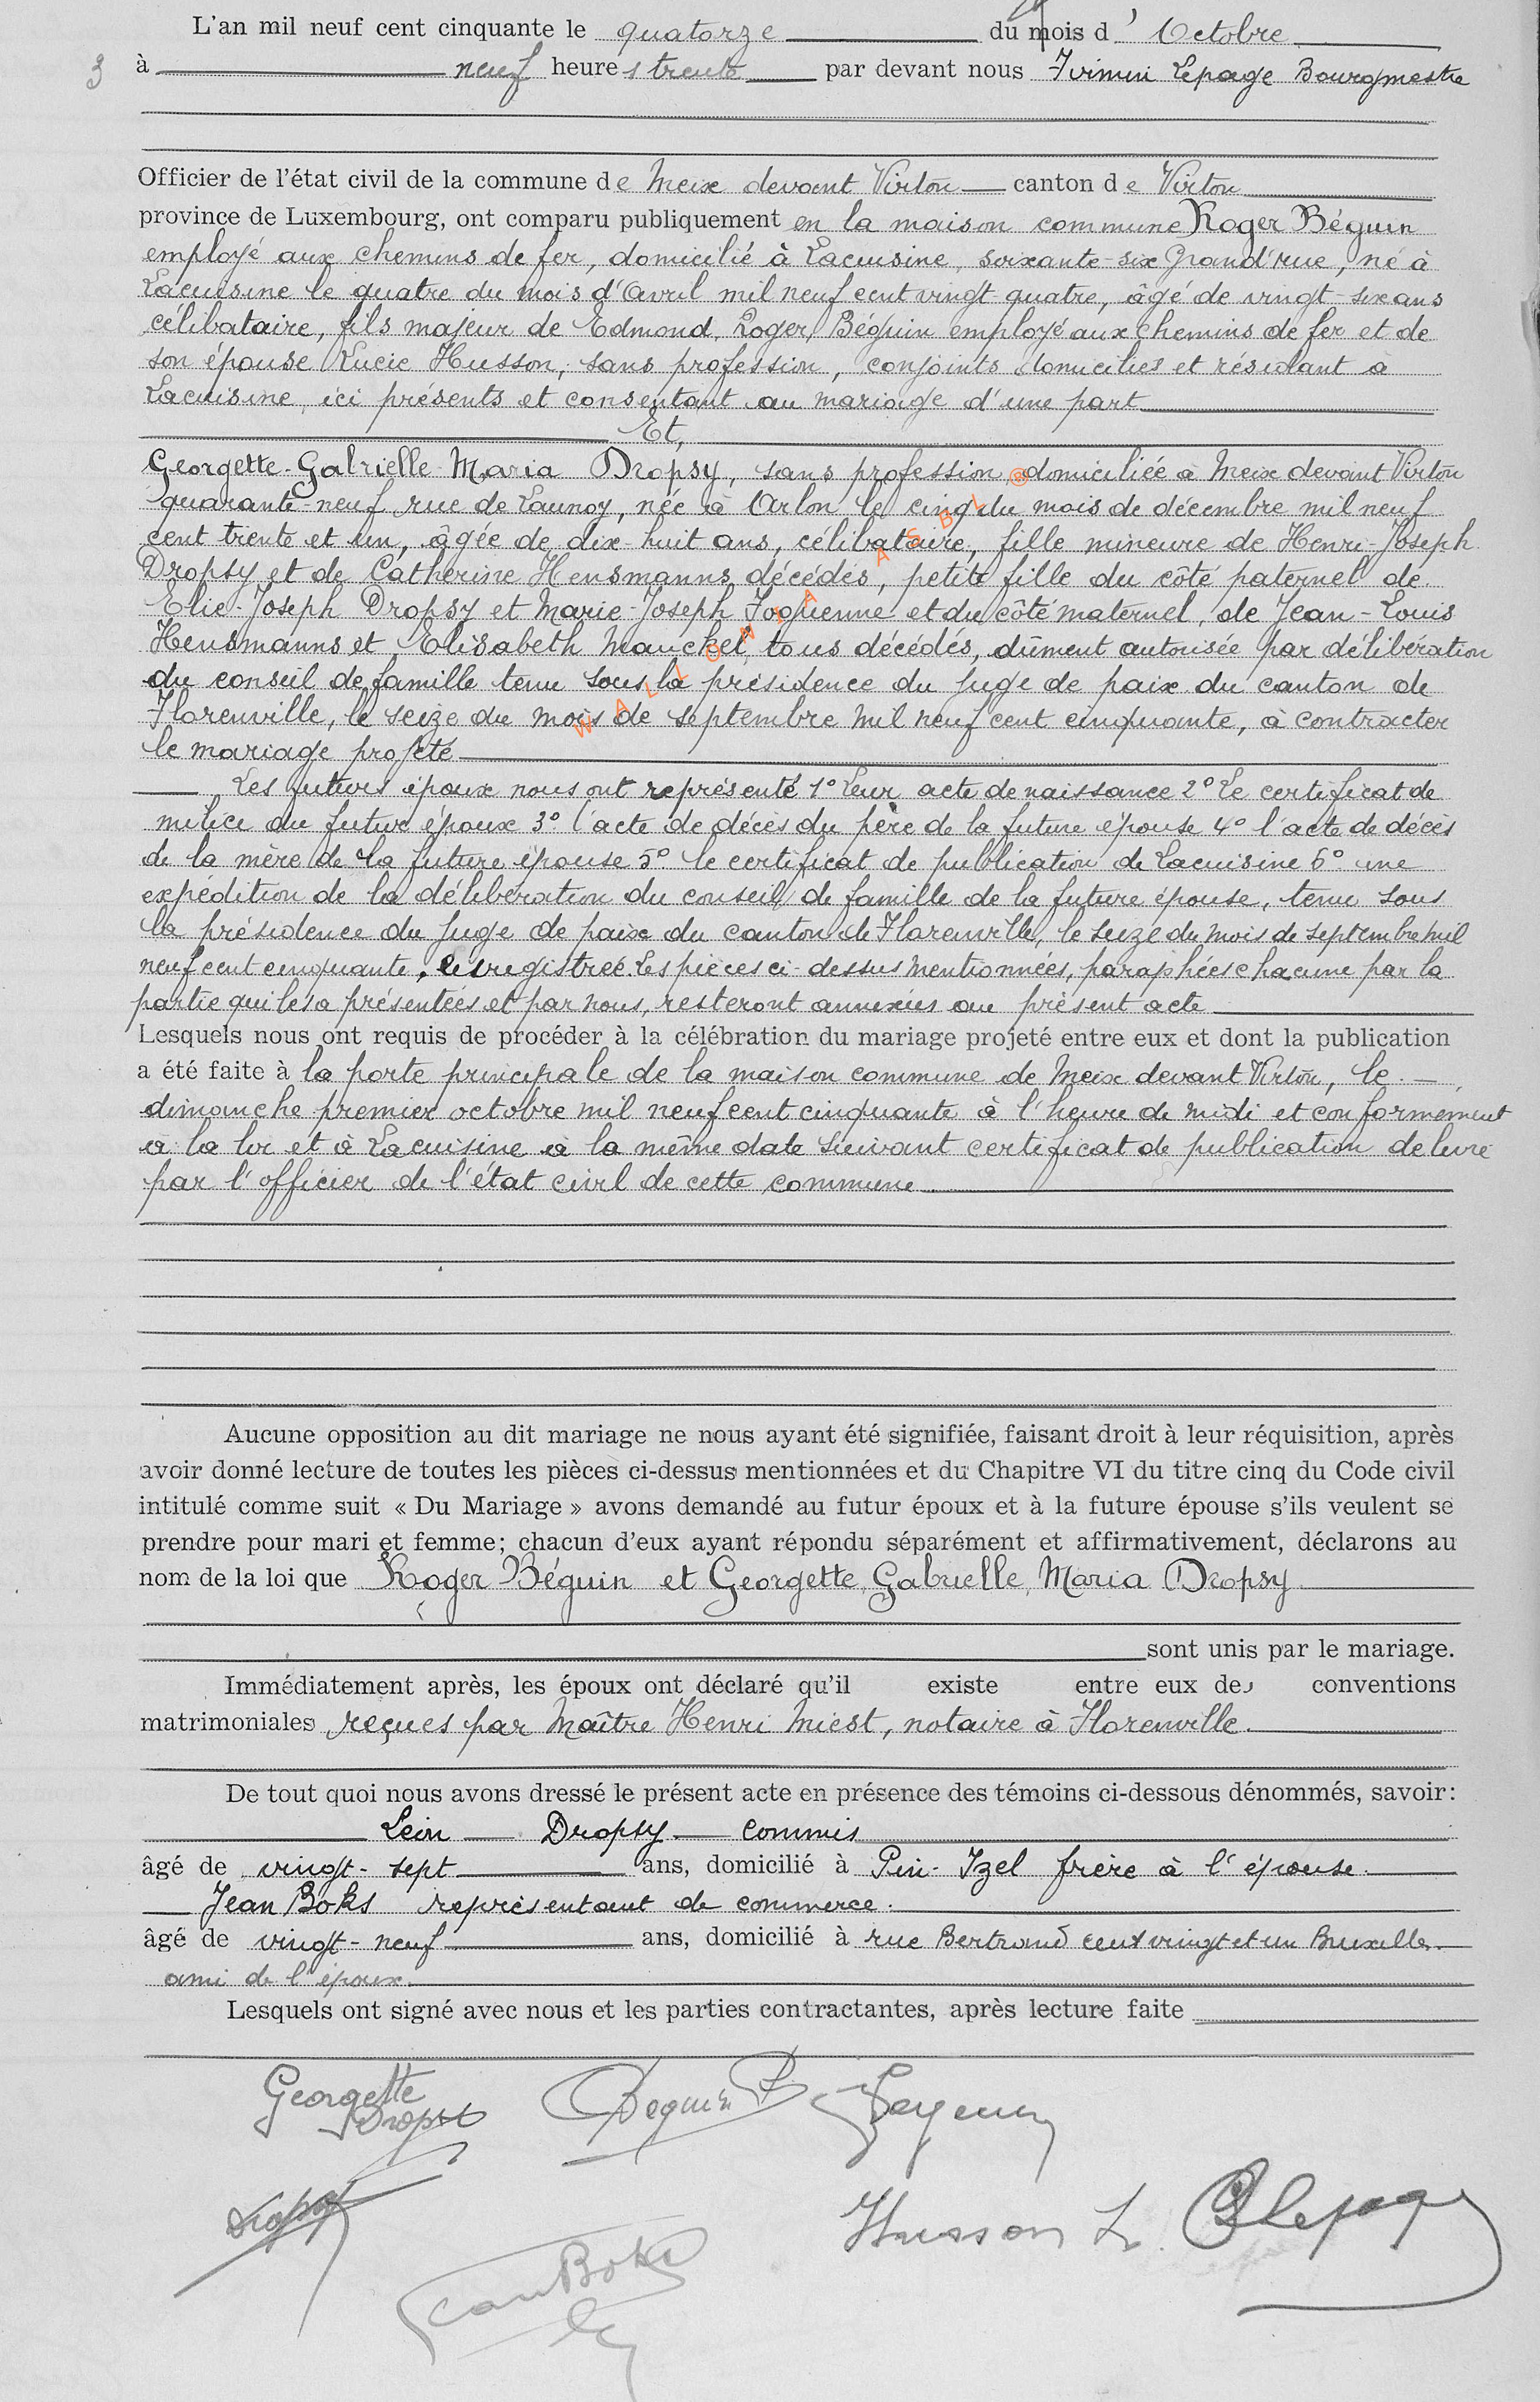 L'an mil neuf cent cinquante le quatorze du mois d' Octobre
3 à neuf heures trente par devant nous Lepage Bourgmestre
Officier de l'état civil de la commune de Meix devant Virton canton de Virton
province de Luxembourg, ont comparu publiquement en la maison commune Roger Béguin
employé aux chemins de fer, domicilié à Lacuisine, soixante-six Grand'rue, né à
Lacuisine le quatre du mois d'Avril mil neuf cent vingt quatre, âgé de vingt-six ans
célibataire, fils majeur de Edmond, Roger, Béguin employé aux chemins de fer et de
son épouse Lucie Husson, sans profession, conjoints domiciliés et résidant à
Lacuisine, ici présents et consentant au mariage d'une part
Et,
Georgette-Gabrielle-Maria Dropsy, sans profession, domiciliée à Meix devant Virton
quarante-neuf rue de Launoy, née à Arlon le cinq du mois de décembre mil neuf
cent trente et un, âgée de dix-huit ans, célibataire, fille mineure de Henri-Joseph
Dropsy et de Catherine Hensmanns décédés, petite fille du côté paternel de
Elie-Joseph Dropsy et Marie-Joseph Foguenne et du côté maternel, de Jean-Louis
Hensmanns et Elisabeth Manckel, tous décédés, dûment autorisée par délibération
du conseil de famille tenu sous la présidence du juge de paix du canton de
Florenville, le seize du mois de septembre mil neuf cent cinquante, à contracter
le mariage projeté
Les futurs époux nous ont représenté 1° Leur acte de naissance 2° Le certificat de
milice du futur époux 3° l'acte de décès du père de la future épouse 4° l'acte de décès
de la mère de la future épouse 5° le certificat de publication de Lacuisine 6° une
expédition de la délibération du conseil de famille de la future épouse, tenu sous
la présidence du juge de paix du canton de Florenville, le seize du mois de septembre mil
neuf cent cinquante, enregistrée. Les pièces ci-dessus mentionnées, paraphées chacune par la
partie qui les a présentées et par nous, resteront annexées au présent acte
Lesquels nous ont requis de procéder à la célébration du mariage projeté entre eux et dont la publication
a été faite à la porte principale de la maison commune de Meix devant Virton, le
dimanche premier octobre mil neuf cent cinquante à l'heure de midi et conformément
à la loi et à Lacuisine à la même date suivant certificat de publication délivré
par l'officier de l'état civil de cette commune
Aucune opposition au dit mariage ne nous ayant été signifiée, faisant droit à leur réquisition, après
avoir donné lecture de toutes les pièces ci-dessus mentionnées et du Chapitre VI du titre cinq du Code civil
intitulé comme suit « Du Mariage » avons demandé au futur époux et à la future épouse s'ils veulent se
prendre pour mari et femme; chacun d'eux ayant répondu séparément et affirmativement, déclarons au
nom de la loi que Roger Béguin et Georgette, Gabrielle, Maria Dropsy
sont unis par le mariage.
Immédiatement après, les époux ont déclaré qu'il existe entre eux des conventions
matrimoniales reçues par Maître Henri Miest, notaire à Florenville.
De tout quoi nous avons dressé le présent acte en présence des témoins ci-dessous dénommés, savoir:
Léon Dropsy commis
âgé de vingt-sept ans, domicilié à Pin-Izel frère à l'épouse.
Jean Boks représentant de commerce.
âgé de vingt-neuf ans, domicilié à rue Bertrand cent vingt et un Bruxelles.
ami de l'époux.
Lesquels ont signé avec nous et les parties contractantes, après lecture faite
Georgette Dropsy Beguin R
Dropsy Husson L. Lepage
Jean Boks
WALLONIA ASBL ®